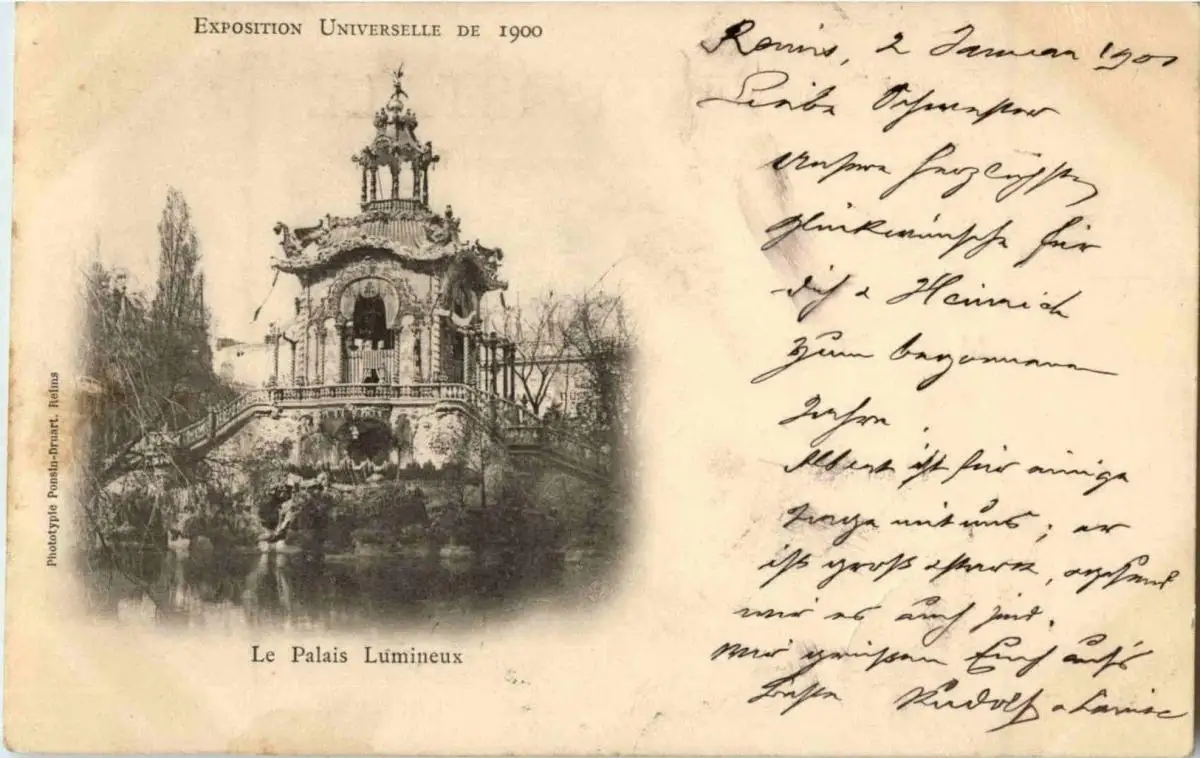 EXPOSITION UNIVERSELLE DE 1900
Reims, 2 Januar 190
Liebe Schwester
Unsere herzlichsten
Glückwünsche für
dich & Heinrich
zum begonnenen
Jahre.
Albert ist für einige
Tage mit uns; er
ist groß & stark,
wir es auch sind.
Wir grüssen Euch auf's
Beste Rudolf &
Phototypie Ponsin-Druart. Reims
LE PALAIS LUMINEUX